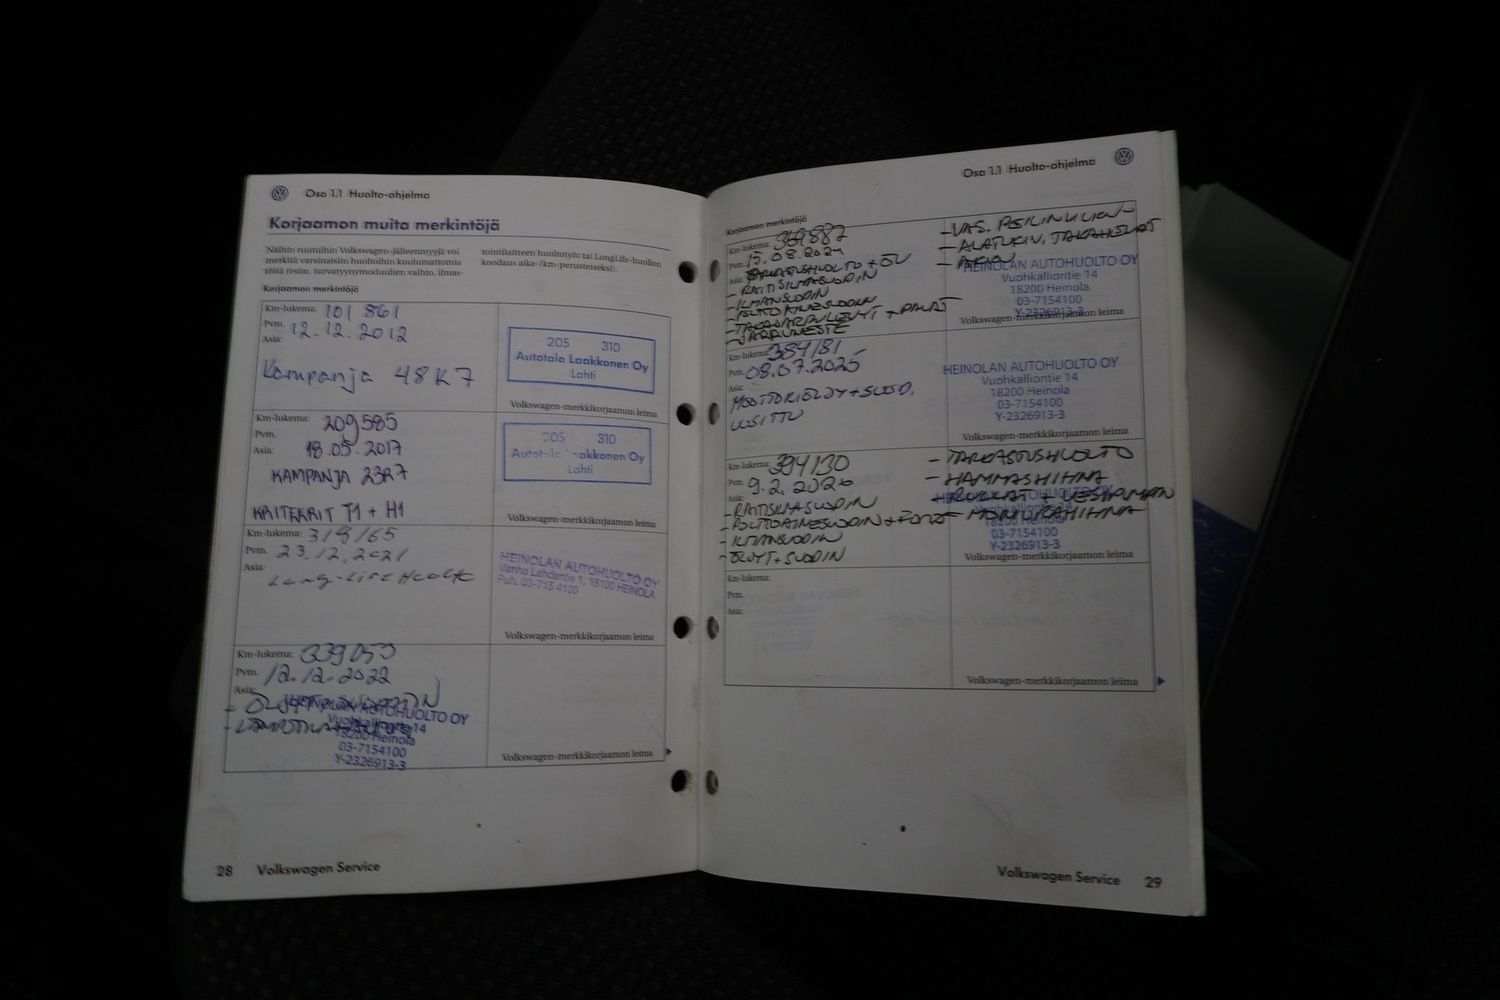 Osa 1.1 Huolto-ohjelma
Korjaamon muita merkintöjä
Näihin ruutuihin Volkswagen-jälleenmyyjä voi
merkitä varsinaisiin huoltoihin kuulumattomia
töitä (esim. turvatyynymoduulien vaihto, ilmas-
tointilaitteen huoltotyöt tai LongLife-huollon
koodaus aika-/km-perusteiseksi).
Korjaamon merkintöjä
Km-lukema: 101 861
Pvm. 12.12.2012
Asia:
Kampanja 48K7
205 310
Autotalo Laakkonen Oy
Lahti
Volkswagen-merkkikorjaamon leima
Km-lukema: 209585
Pvm. 18.05.2017
Asia:
KAMPANJA 23R7
KRITEERIT T1 + H1
205 310
Autotalo Laakkonen Oy
Lahti
Volkswagen-merkkikorjaamon leima
Km-lukema: 319165
Pvm. 23.12.2021
Asia: Long-Life Huolto
HEINOLAN AUTOHUOLTO OY
Vanha Lahdentie 1, 18100 HEINOLA
Puh. 03-715 4100
Volkswagen-merkkikorjaamon leima
Km-lukema: 339053
Pvm. 12.12.2022
Asia:
HEINOLAN AUTOHUOLTO OY
Vuohkalliontie 14
18200 Heinola
03-7154100
Y-2326913-3
Volkswagen-merkkikorjaamon leima
28 Volkswagen Service
Osa 1.1 Huolto-ohjelma
Korjaamon merkintöjä
Km-lukema: 369887
Pvm. 15.08.2024
Asia: TARKASTUSHUOLTO + ÖV
- RAITISILMASUODIN
- ILMANSUODIN
- POLTTOAINESUODIN
- TAKAJARRULEVYT + PALAT
- JARRUNESTE
- VAS. PEILINKUVIN
- ALATUKIV. TAKAHELAT
HEINOLAN AUTOHUOLTO OY
Vuohkalliontie 14
18200 Heinola
03-7154100
Y-2326913-3
Volkswagen-merkkikorjaamon leima
Km-lukema: 384181
Pvm. 08.07.2025
Asia:
MOOTTORIÖLJY + SUOD.
UUSITTU
HEINOLAN AUTOHUOLTO OY
Vuohkalliontie 14
18200 Heinola
03-7154100
Y-2326913-3
Volkswagen-merkkikorjaamon leima
Km-lukema: 394130
Pvm. 9.2.2026
Asia:
- RAITISILMASUODIN
- POLTTOAINESUODIN +
- ILMANSUODIN
- ÖLJYT + SUODIN
- TARKASTUSHUOLTO
- HAMMASHIHNA
- RULLAT + VESIPUMPPU
- MONIURAHIHNA
HEINOLAN AUTOHUOLTO OY
Vuohkalliontie 14
18200 Heinola
03-7154100
Y-2326913-3
Volkswagen-merkkikorjaamon leima
Km-lukema:
Pvm.
Asia:
Volkswagen-merkkikorjaamon leima
Volkswagen Service 29